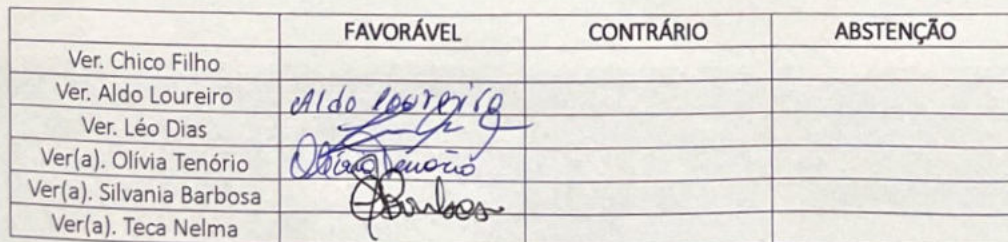 FAVORÁVEL CONTRÁRIO ABSTENÇÃO
Ver. Chico Filho
Ver. Aldo Loureiro Aldo Loureiro
Ver. Léo Dias
Ver(a). Olívia Tenório Olívia Tenório
Ver(a). Silvania Barbosa SBarbosa
Ver(a). Teca Nelma